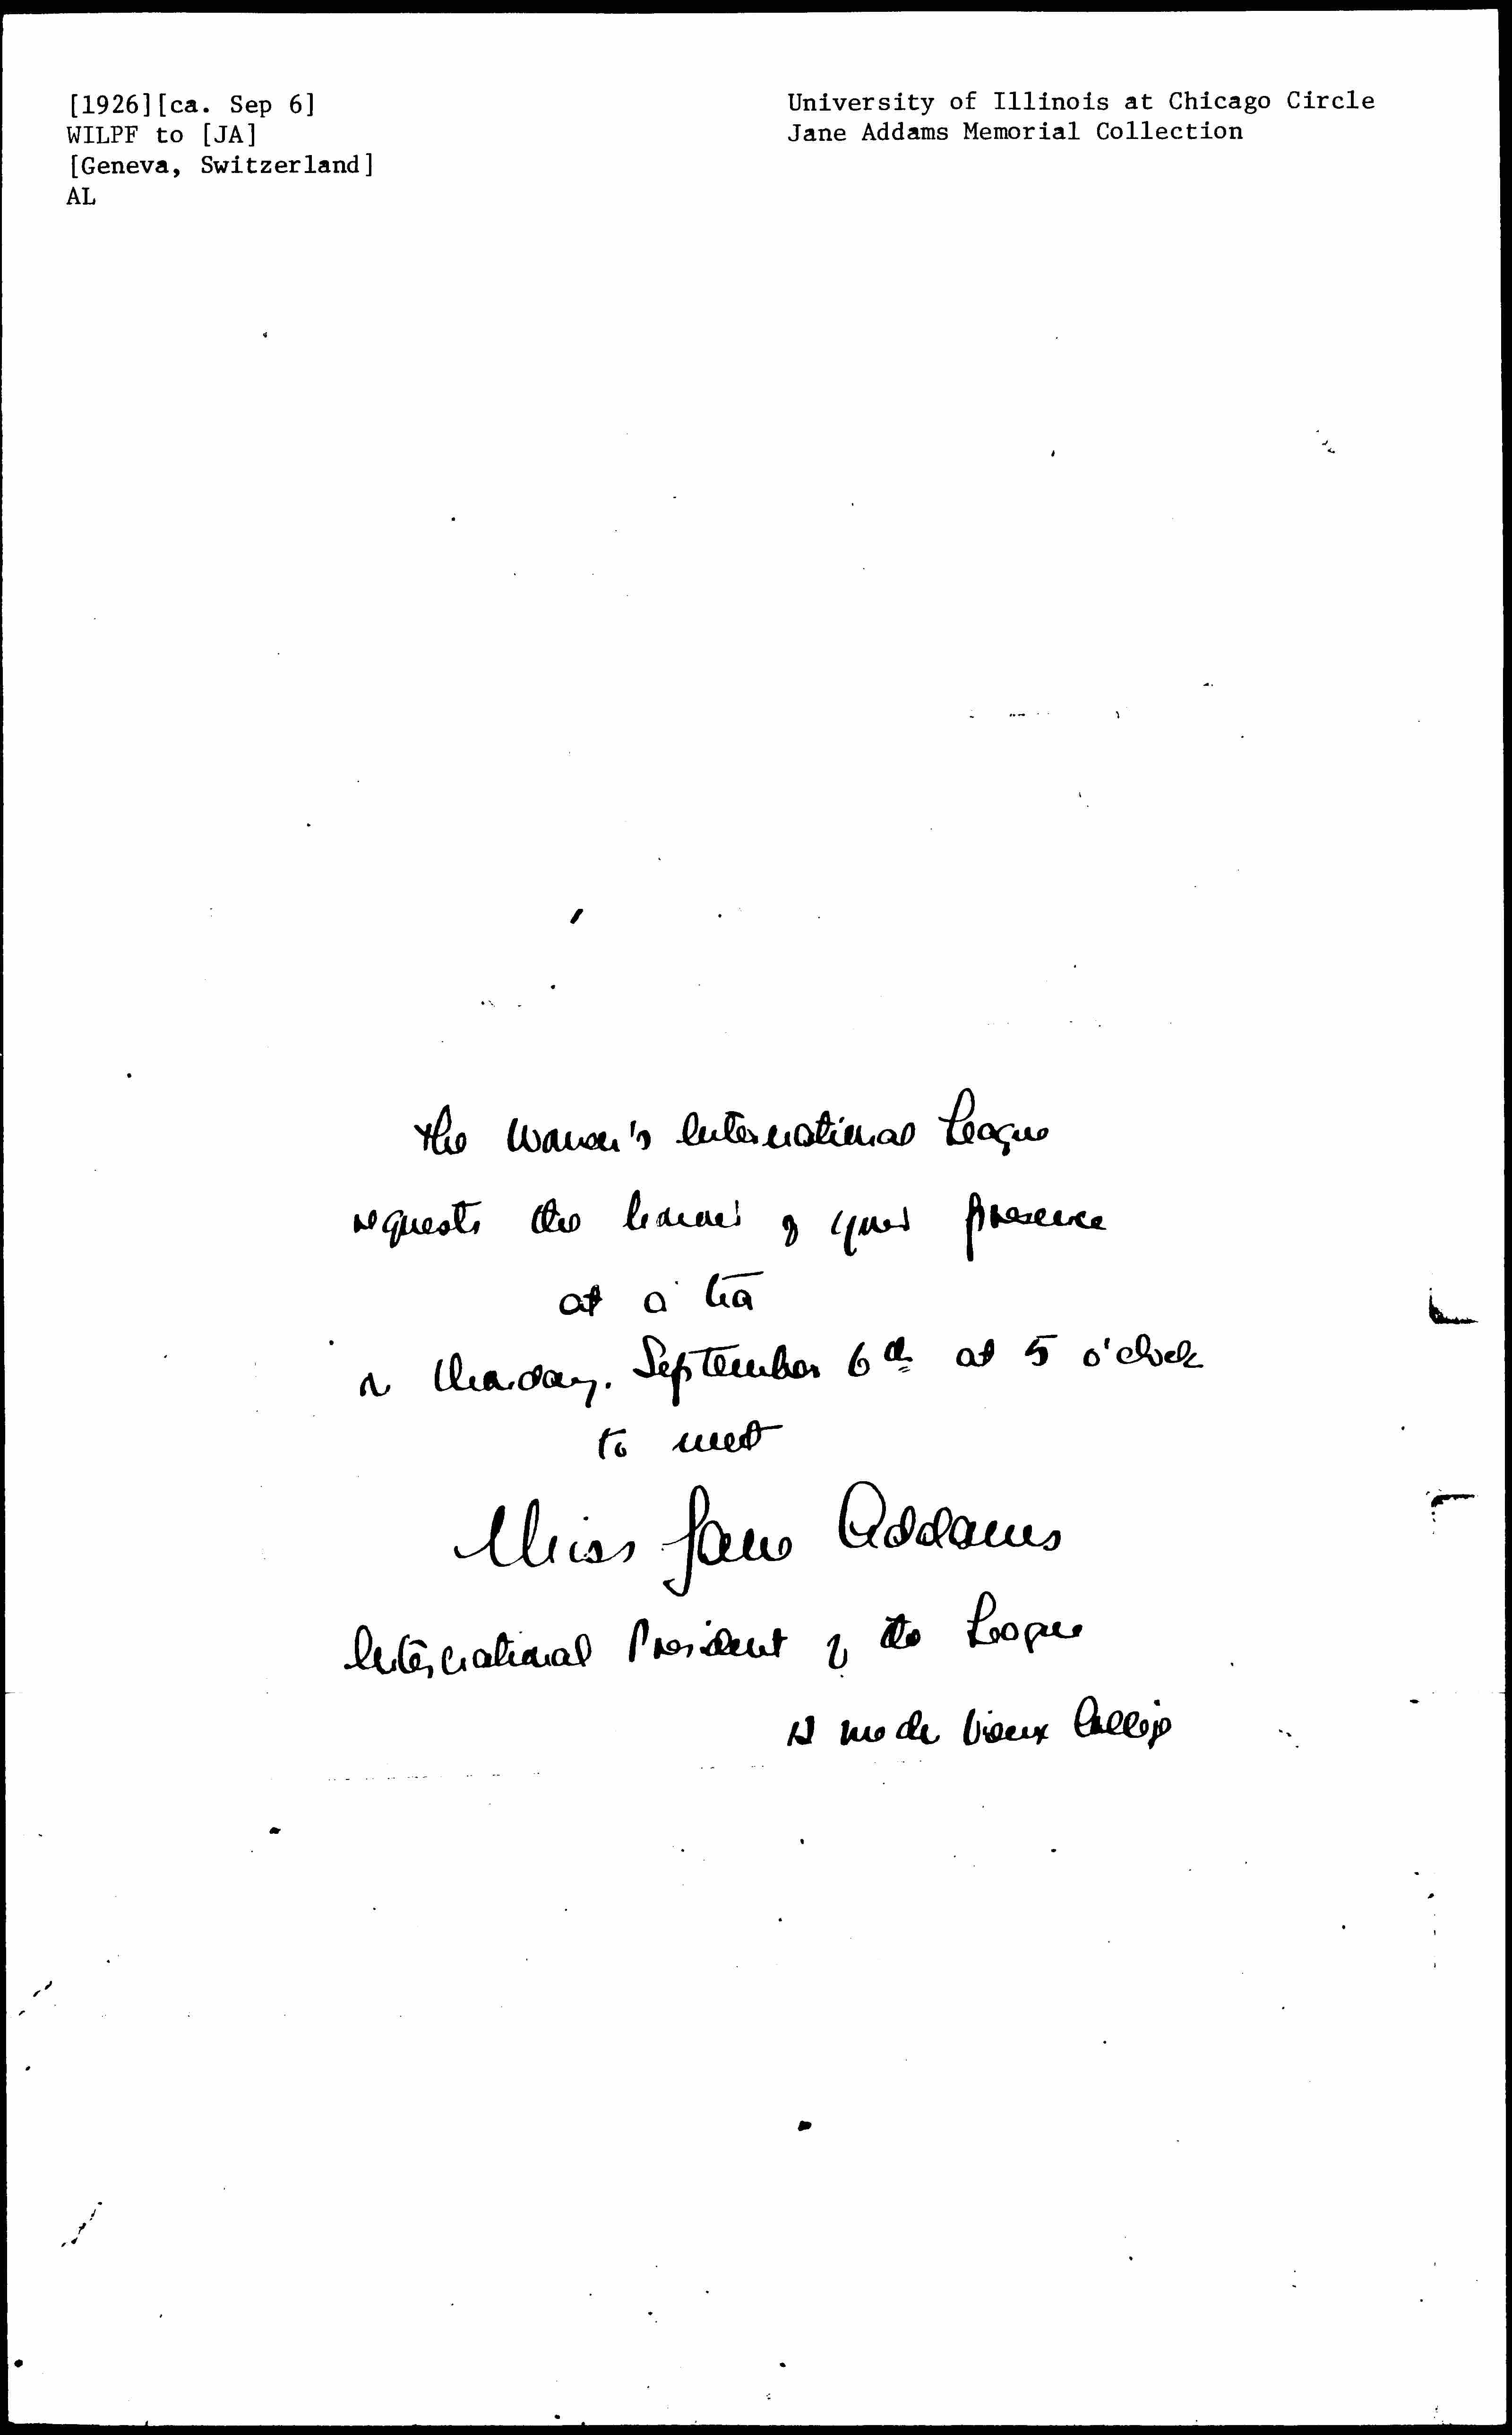 [1926][ca. Sep 6]
WILPF to [JA]
[Geneva, Switzerland]
AL
University of Illinois at Chicago Circle
Jane Addams Memorial Collection
The Women's International League
requests the honour of your presence
at a tea
on Monday. September 6th at 5 o'clock
to meet
Miss Jane Addams
International President of the League
12 rue du Vieux Collège